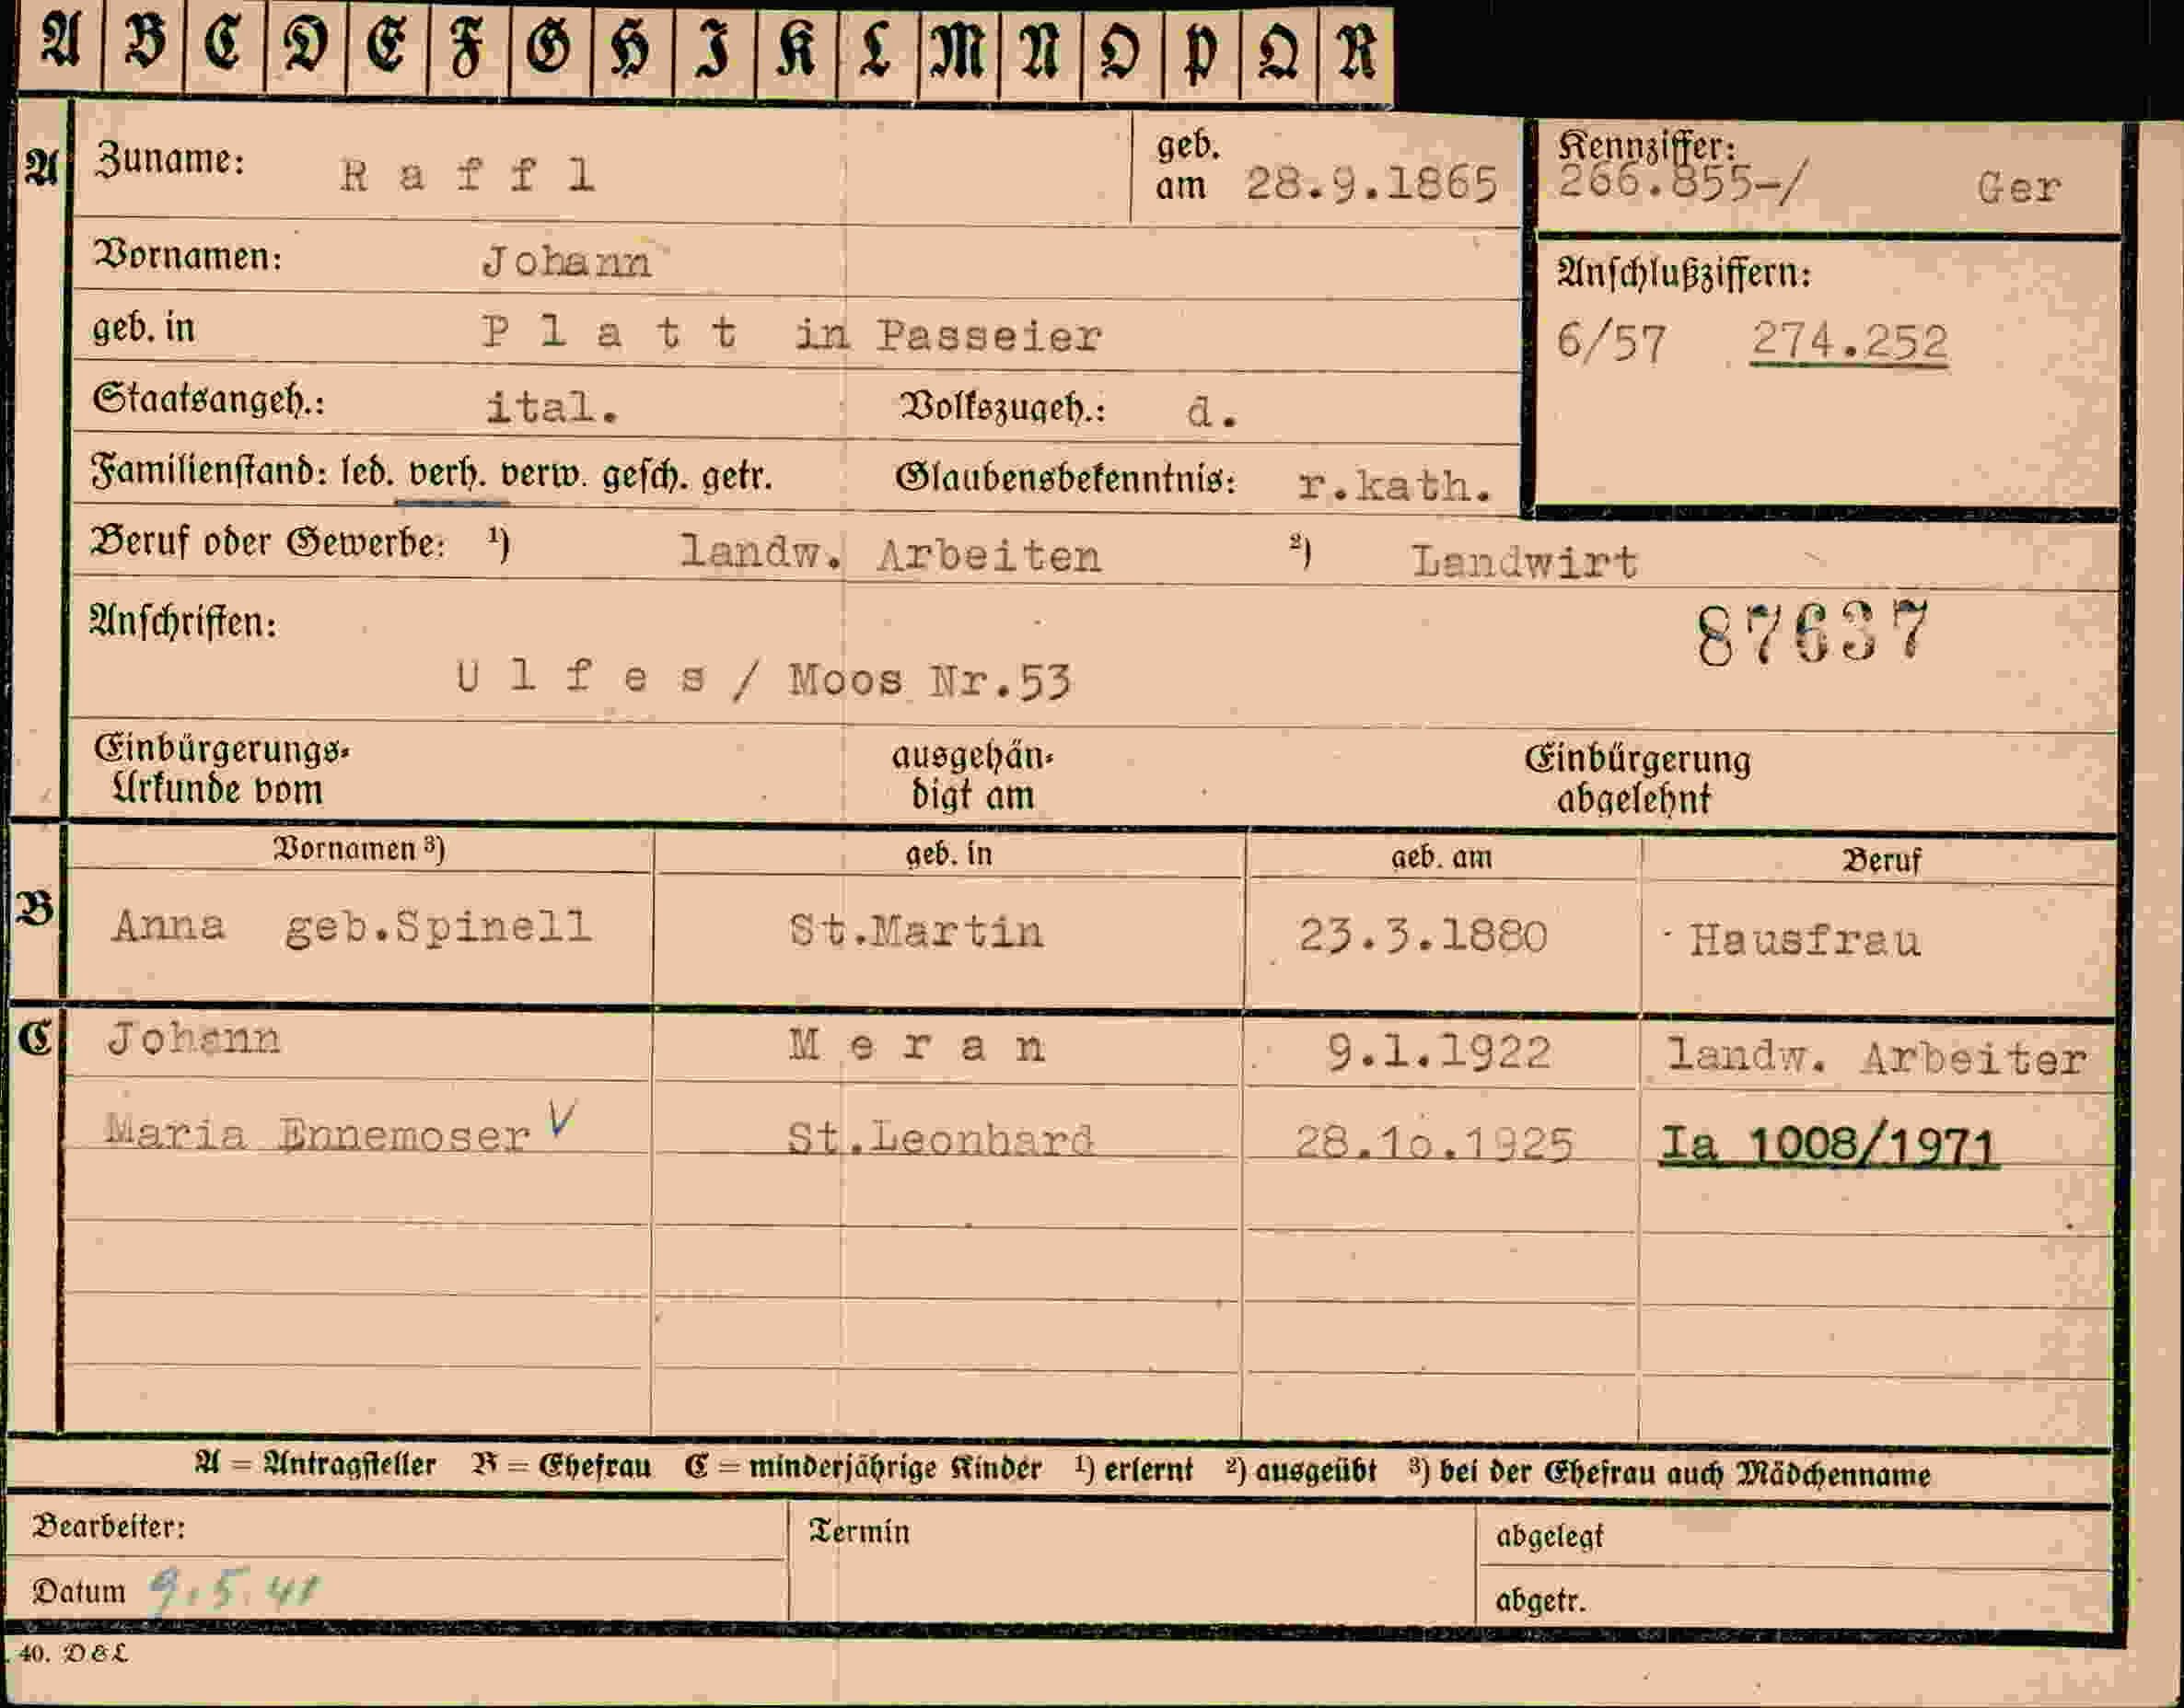 A B C D E F G H I K L M N O P Q R
A Zuname: Raffl geb. am 28.9.1865 Kennziffer: 266.855-/ Ger
Vornamen: Johann Anschlußziffern:
geb. in Platt in Passeier 6/57 274.252
Staatsangeh.: ital. Volkszugeh.: d.
Familienstand: led. verh. verw. gesch. getr. Glaubensbekenntnis: r.kath.
Beruf oder Gewerbe: ¹) landw. Arbeiten ²) Landwirt
Anschriften: 87637
Ulfes / Moos Nr.53
Einbürgerungs- ausgehän- Einbürgerung
Urkunde vom digt am abgelehnt
Vornamen ³) geb. in geb. am Beruf
B Anna geb.Spinell St.Martin 23.3.1880 Hausfrau
C Johann Meran 9.1.1922 landw. Arbeiter
Maria Ennemoser V St.Leonhard 28.10.1925 Ia 1008/1971
A = Antragsteller B = Ehefrau C = minderjährige Kinder ¹) erlernt ²) ausgeübt ³) bei der Ehefrau auch Mädchenname
Bearbeiter: Termin abgelegt
Datum 9.5.41 abgetr.
40. D & L